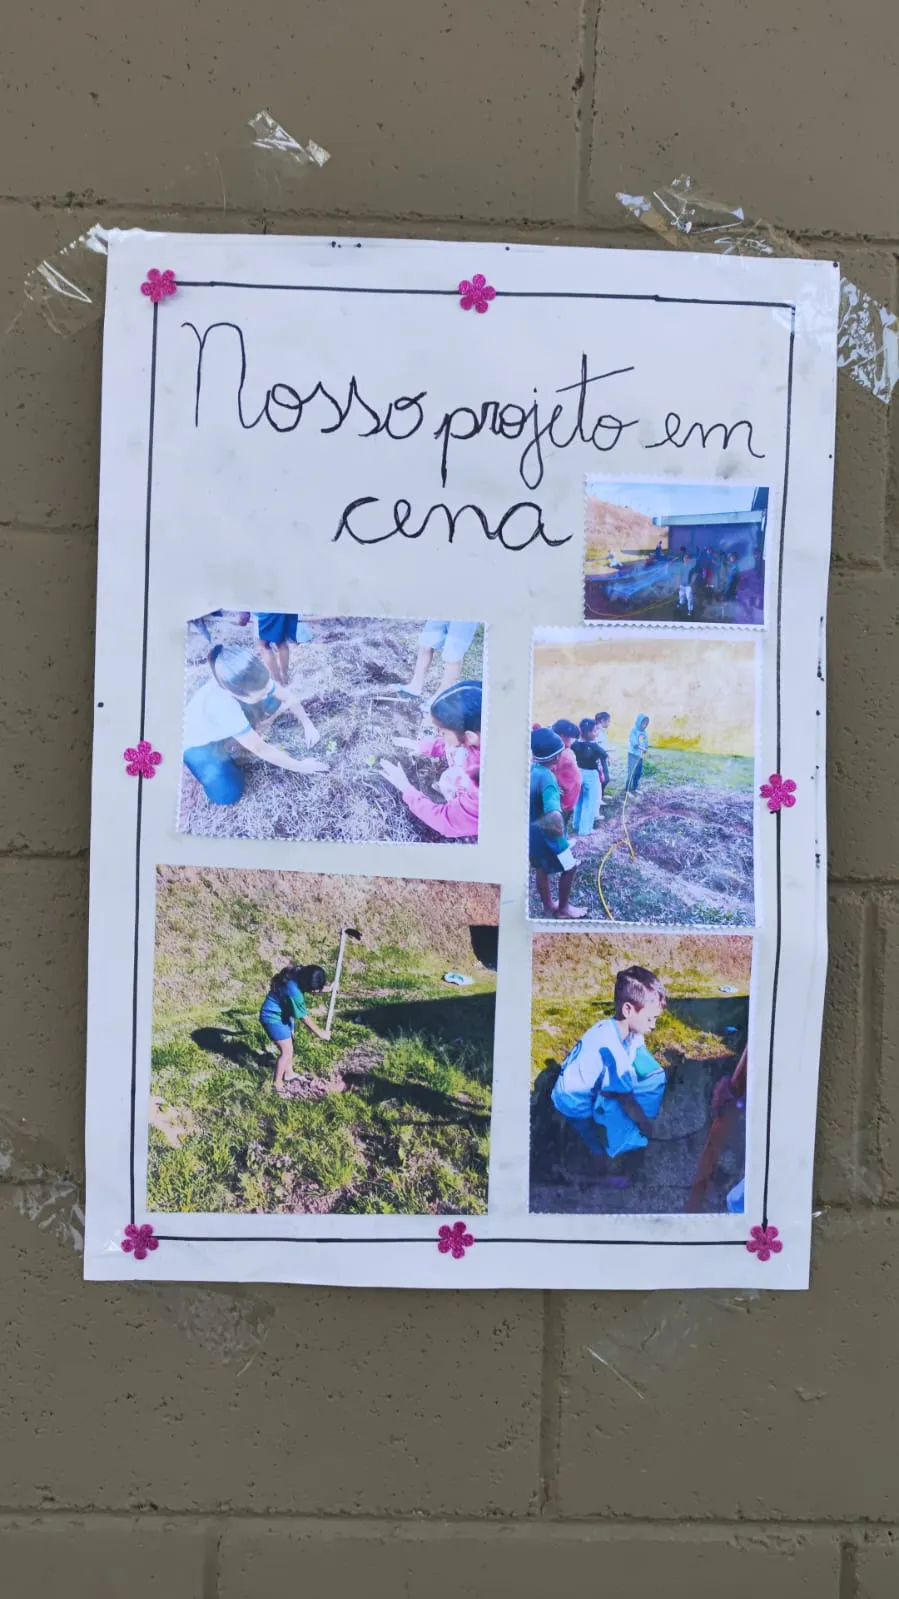 Nosso projeto em
cena